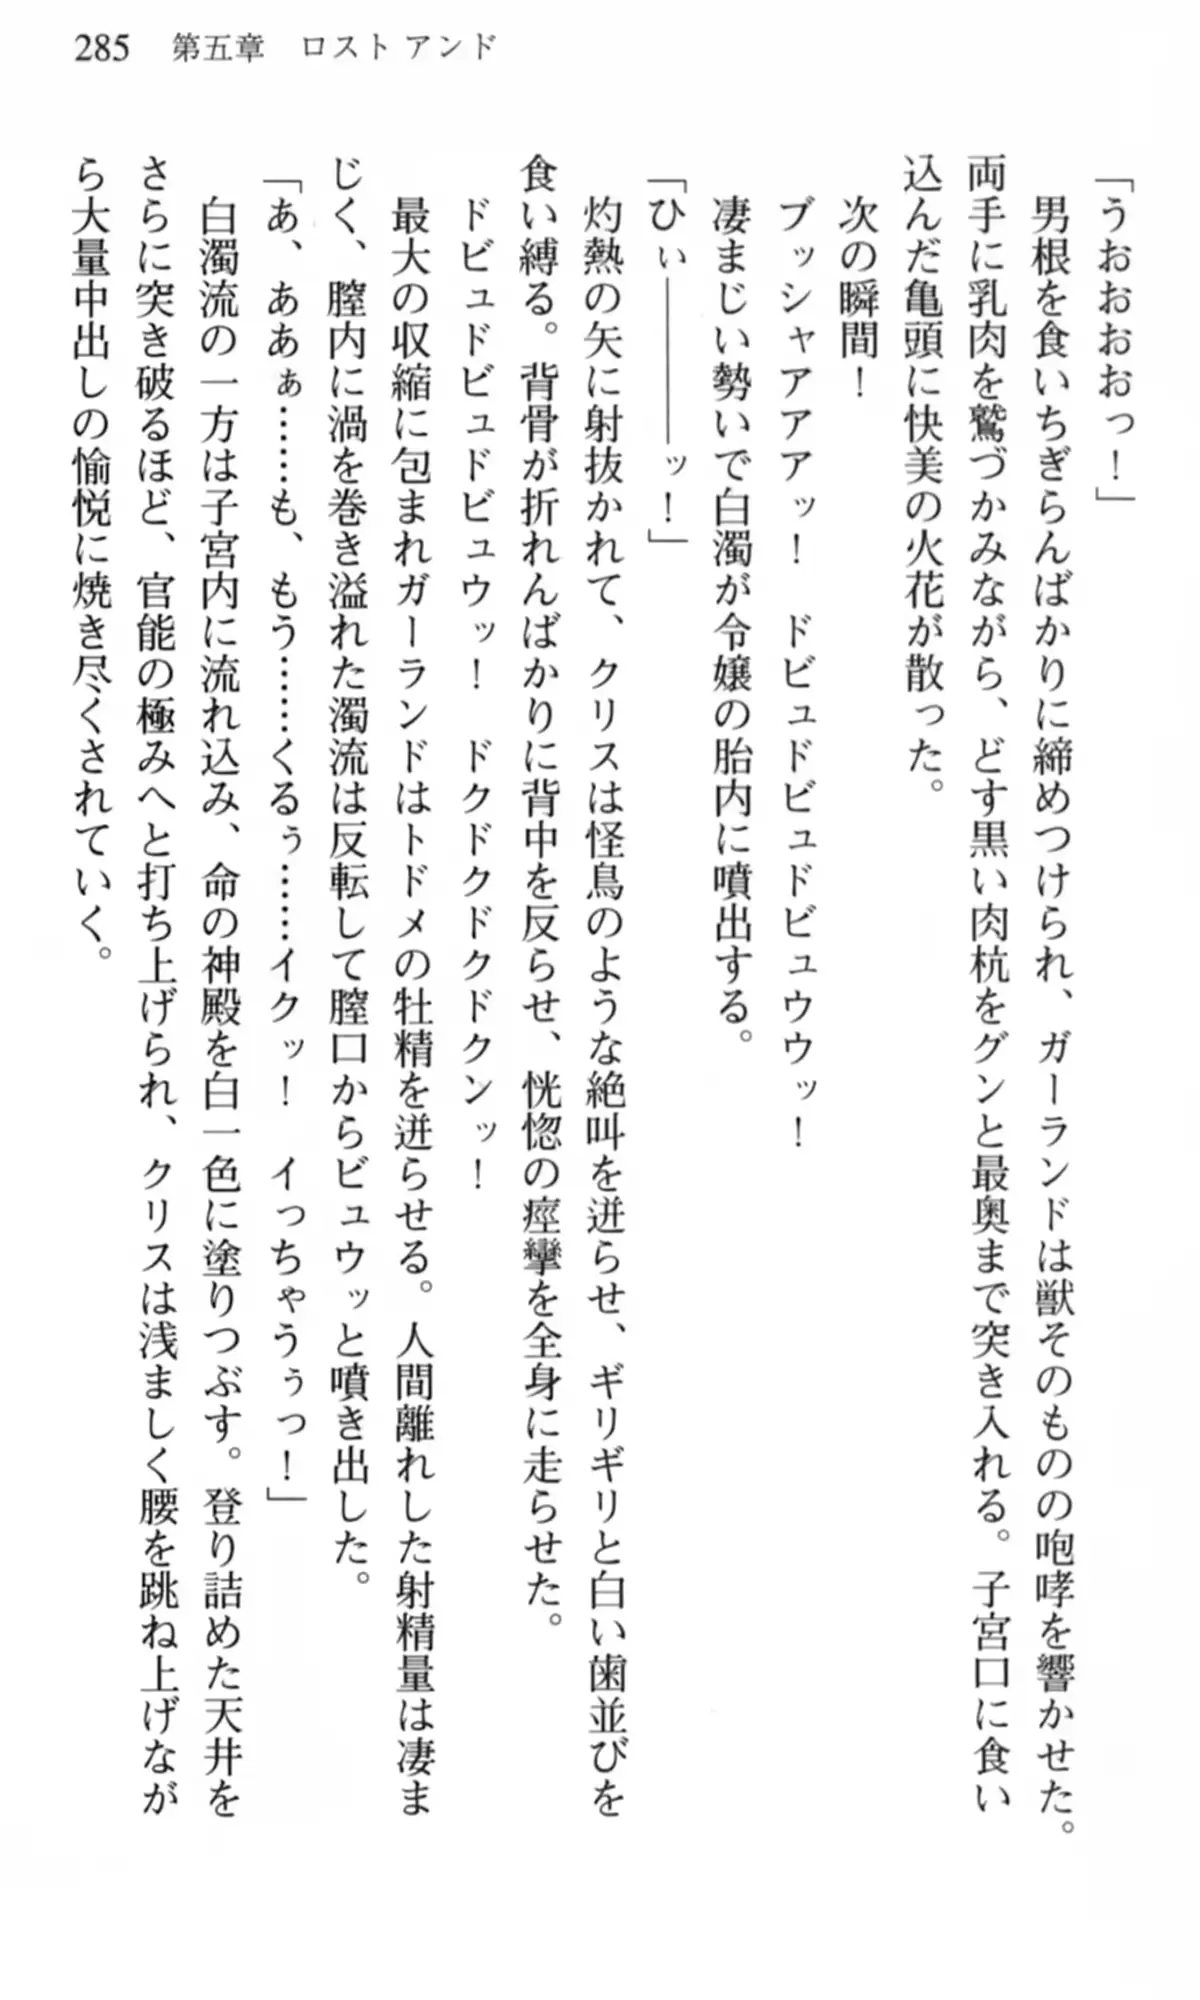 285 第五章 ロスト アンド
「うおおおおっ！」
男根を食いちぎらんばかりに締めつけられ、ガーランドは獣そのものの咆哮を響かせた。
両手に乳肉を鷲づかみながら、どす黒い肉杭をグンと最奥まで突き入れる。子宮口に食い
込んだ亀頭に快美の火花が散った。
次の瞬間！
ブッシャアアアッ！　ドビュドビュドビュウウッ！
凄まじい勢いで白濁が令嬢の胎内に噴出する。
「ひぃ――――ッ！」
灼熱の矢に射抜かれて、クリスは怪鳥のような絶叫を迸らせ、ギリギリと白い歯並びを
食い縛る。背骨が折れんばかりに背中を反らせ、恍惚の痙攣を全身に走らせた。
ドビュドビュドビュウッ！　ドクドクドクドクンッ！
最大の収縮に包まれガーランドはトドメの牡精を迸らせる。人間離れした射精量は凄ま
じく、膣内に渦を巻き溢れた濁流は反転して膣口からビュウッと噴き出した。
「あ、ああぁ……も、もう……くるぅ……イクッ！　イっちゃうぅっ！」
白濁流の一方は子宮内に流れ込み、命の神殿を白一色に塗りつぶす。登り詰めた天井を
さらに突き破るほど、官能の極みへと打ち上げられ、クリスは浅ましく腰を跳ね上げなが
ら大量中出しの愉悦に焼き尽くされていく。